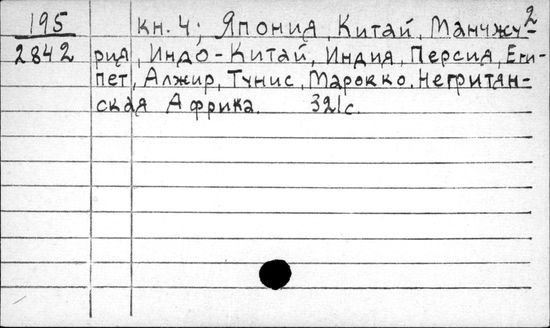 2
195 кн. 4; Япония, Китай, Манчжу-
2842 рия, Индо-Китай, Индия, Персия, Еги-
пет, Алжир, Тунис, Марокко, Негритян-
ская Африка. 321с.